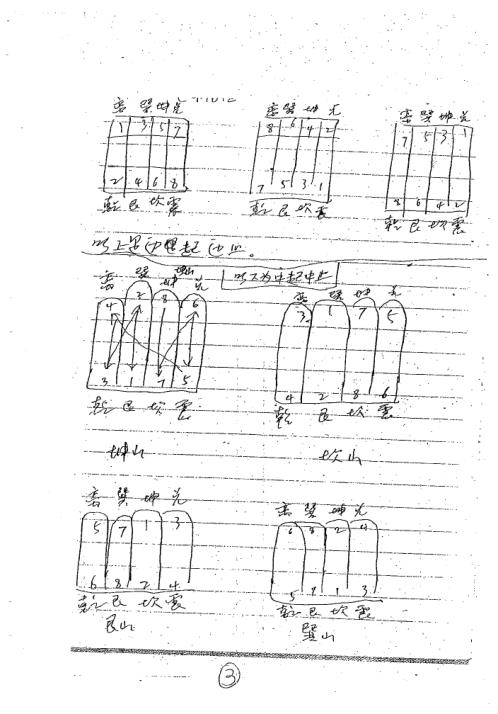 离 巽 坤 兑 离 巽 坤 兑 离 巽 坤 兑
1 3 5 7 8 6 4 2 7 5 3 1
2 4 6 8 7 5 3 1 8 6 4 2
乾 艮 坎 震 乾 艮 坎 震 乾 艮 坎 震
以上 起边止。
以下为中起中止
离 巽 坤 兑 离 巽 坤 兑
4 2 8 6 3 1 7 5
3 1 7 5 4 2 8 6
乾 艮 坎 震 乾 艮 坎 震
坤山 坎山
离 巽 坤 兑 离 巽 坤 兑
5 7 1 3 6 8 2 4
6 8 2 4 5 7 1 3
乾 艮 坎 震 乾 艮 坎 震
艮山 巽山
③